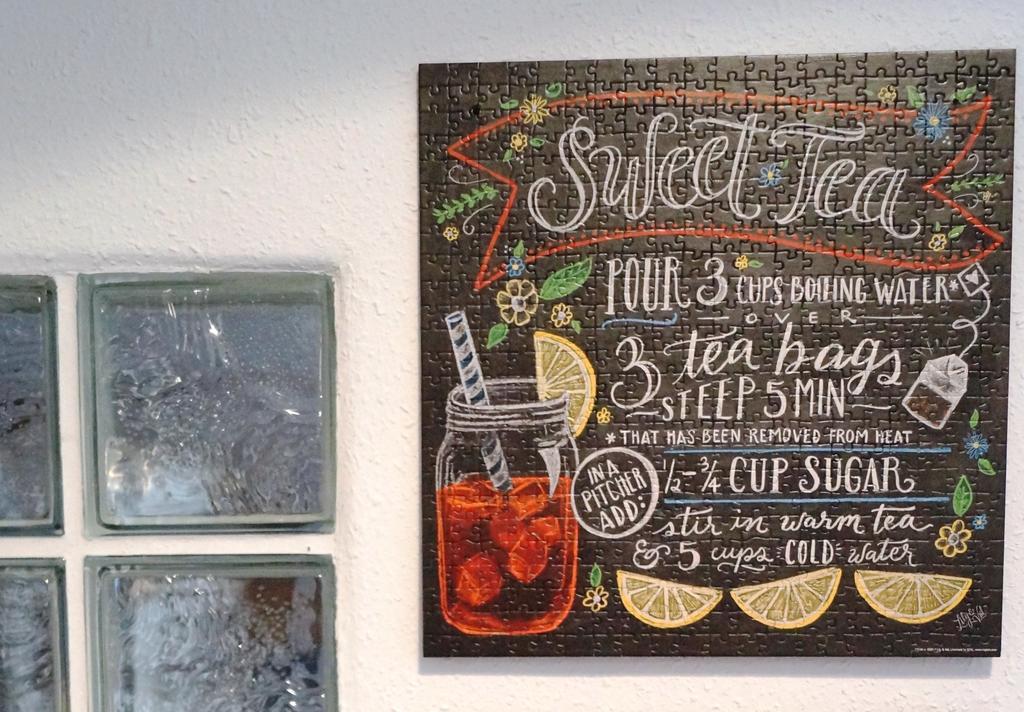 Sweet Tea
POUR 3 CUPS BOILING WATER*
OVER
3 tea bags
STEEP 5 MIN
*THAT HAS BEEN REMOVED FROM HEAT
IN A
PITCHER
ADD:
1/2 - 3/4 CUP SUGAR
stir in warm tea
& 5 cups COLD water
Lily & Val